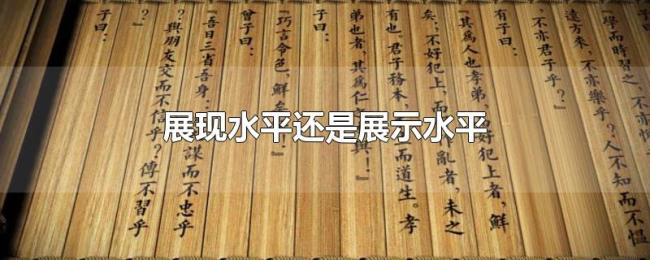 展现水平还是展示水平
『學而時習之，
遠方來，不亦樂乎？人不知而不慍
，不亦君子乎？』
有子曰：
『其爲人也孝弟，好犯上者，鮮
矣，不好犯上，而作亂者，未之
有也。君子務本，而道生。孝
弟也者，其爲仁與！』
子曰：
『巧言令色，鮮矣！』
曾子曰：
『吾日三省吾身：謀而不忠乎
？與朋友交而不信乎？傳不習乎
？』
子曰：